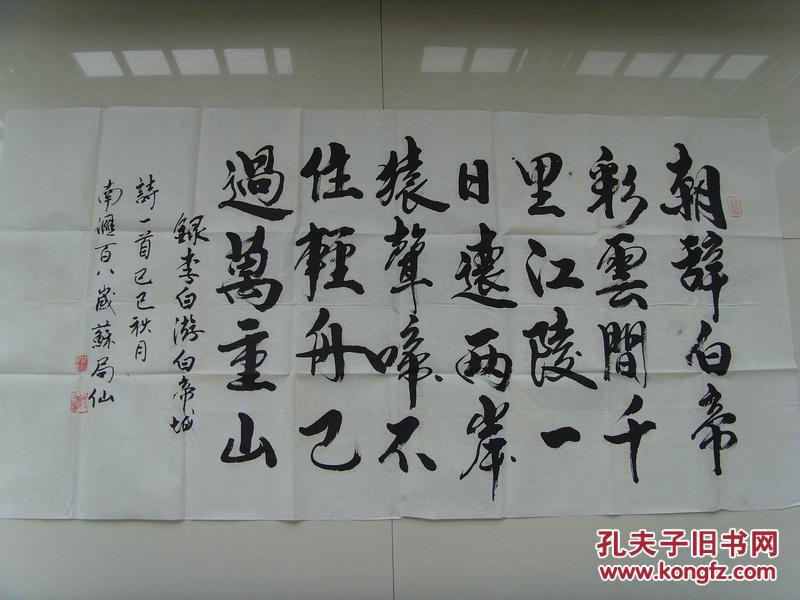 朝辞白帝
彩雲間千
里江陵一
日還兩岸
猿聲啼不
住輕舟已
過萬重山
錄李白游白帝城
詩一首己巳秋月
南滙百八歲蘇局仙
孔夫子旧书网
www.kongfz.com